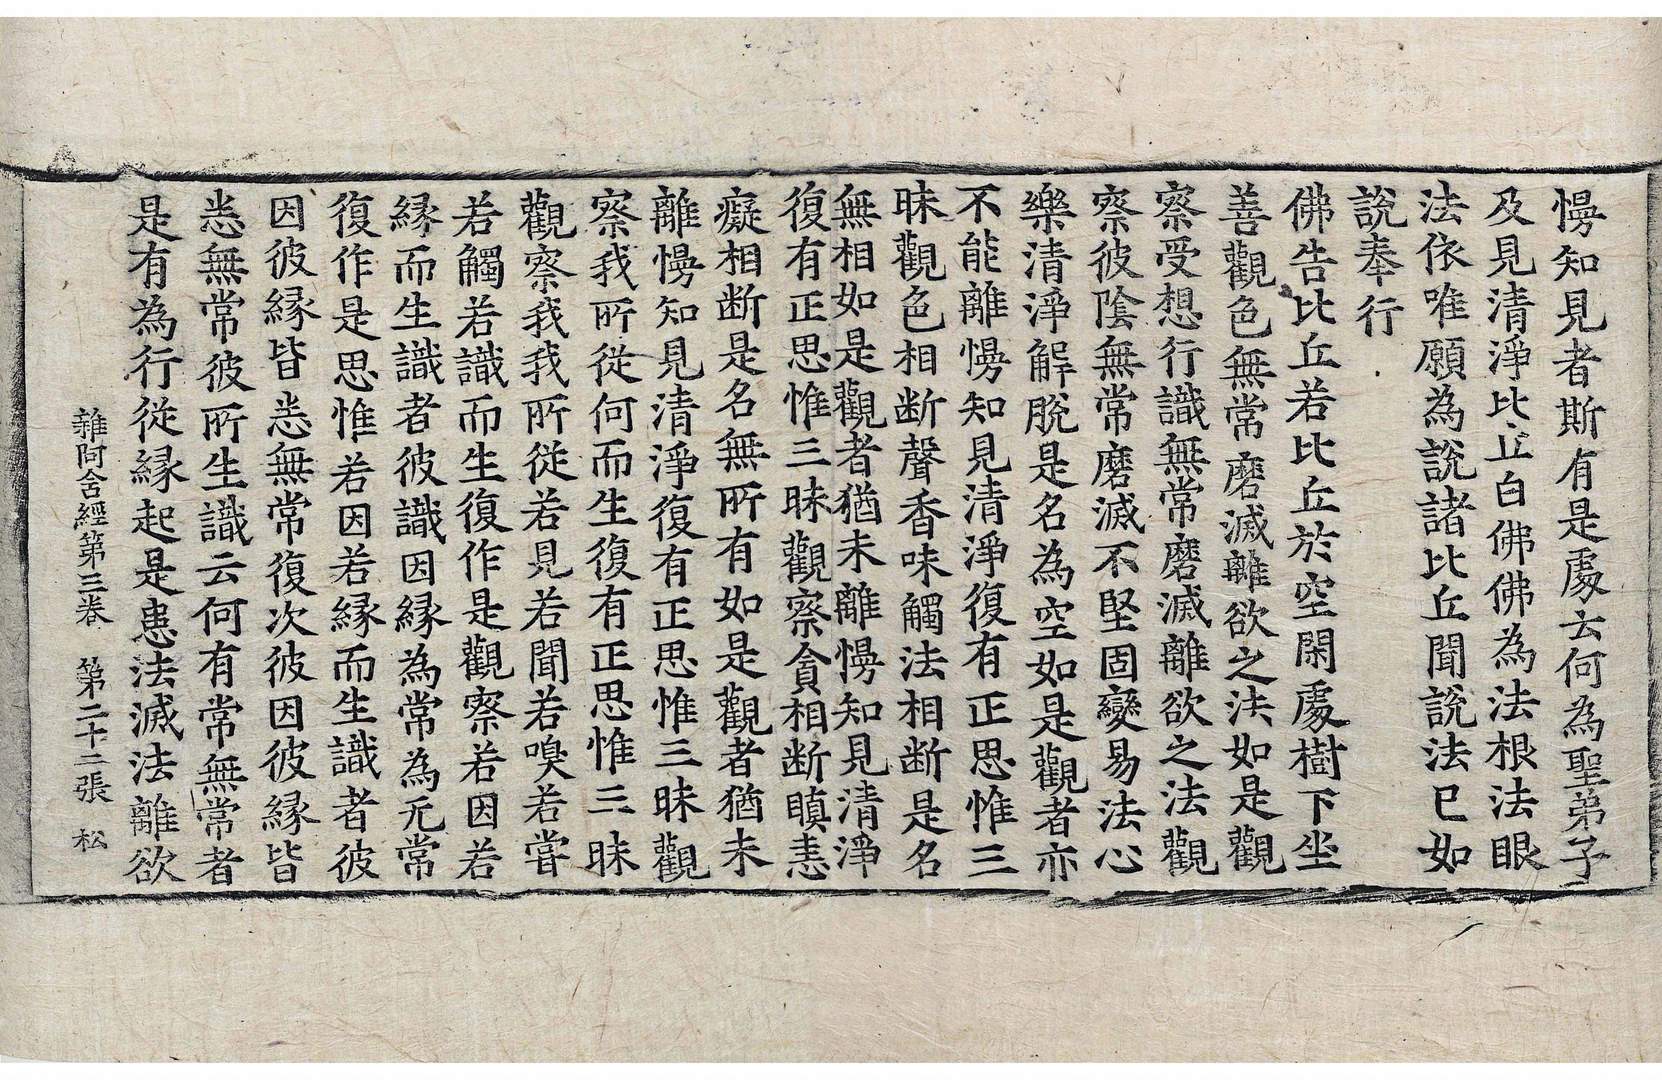 慢知見者斯有是處云何為聖弟子
及見清淨比丘白佛佛為法根法眼
法依唯願為說諸比丘聞說法已如
說奉行
佛告比丘若比丘於空閑處樹下坐
善觀色無常磨滅離欲之法如是觀
察受想行識無常磨滅離欲之法觀
察彼陰無常磨滅不堅固變易法心
樂清淨解脫是名為空如是觀者亦
不能離慢知見清淨復有正思惟三
昧觀色相断聲香味觸法相断是名
無相如是觀者猶未離慢知見清淨
復有正思惟三昧觀察貪相断瞋恚
癡相断是名無所有如是觀者猶未
離慢知見清淨復有正思惟三昧觀
察我所從何而生復有正思惟三昧
觀察我我所從若見若聞若嗅若甞
若觸若識而生復作是觀察若因若
縁而生識者彼識因縁為常為无常
復作是思惟若因若縁而生識者彼
因彼縁皆悉無常復次彼因彼縁皆
悉無常彼所生識云何有常無常者
是有為行從縁起是患法滅法離欲
雜阿含經第三卷 第二十二張 松